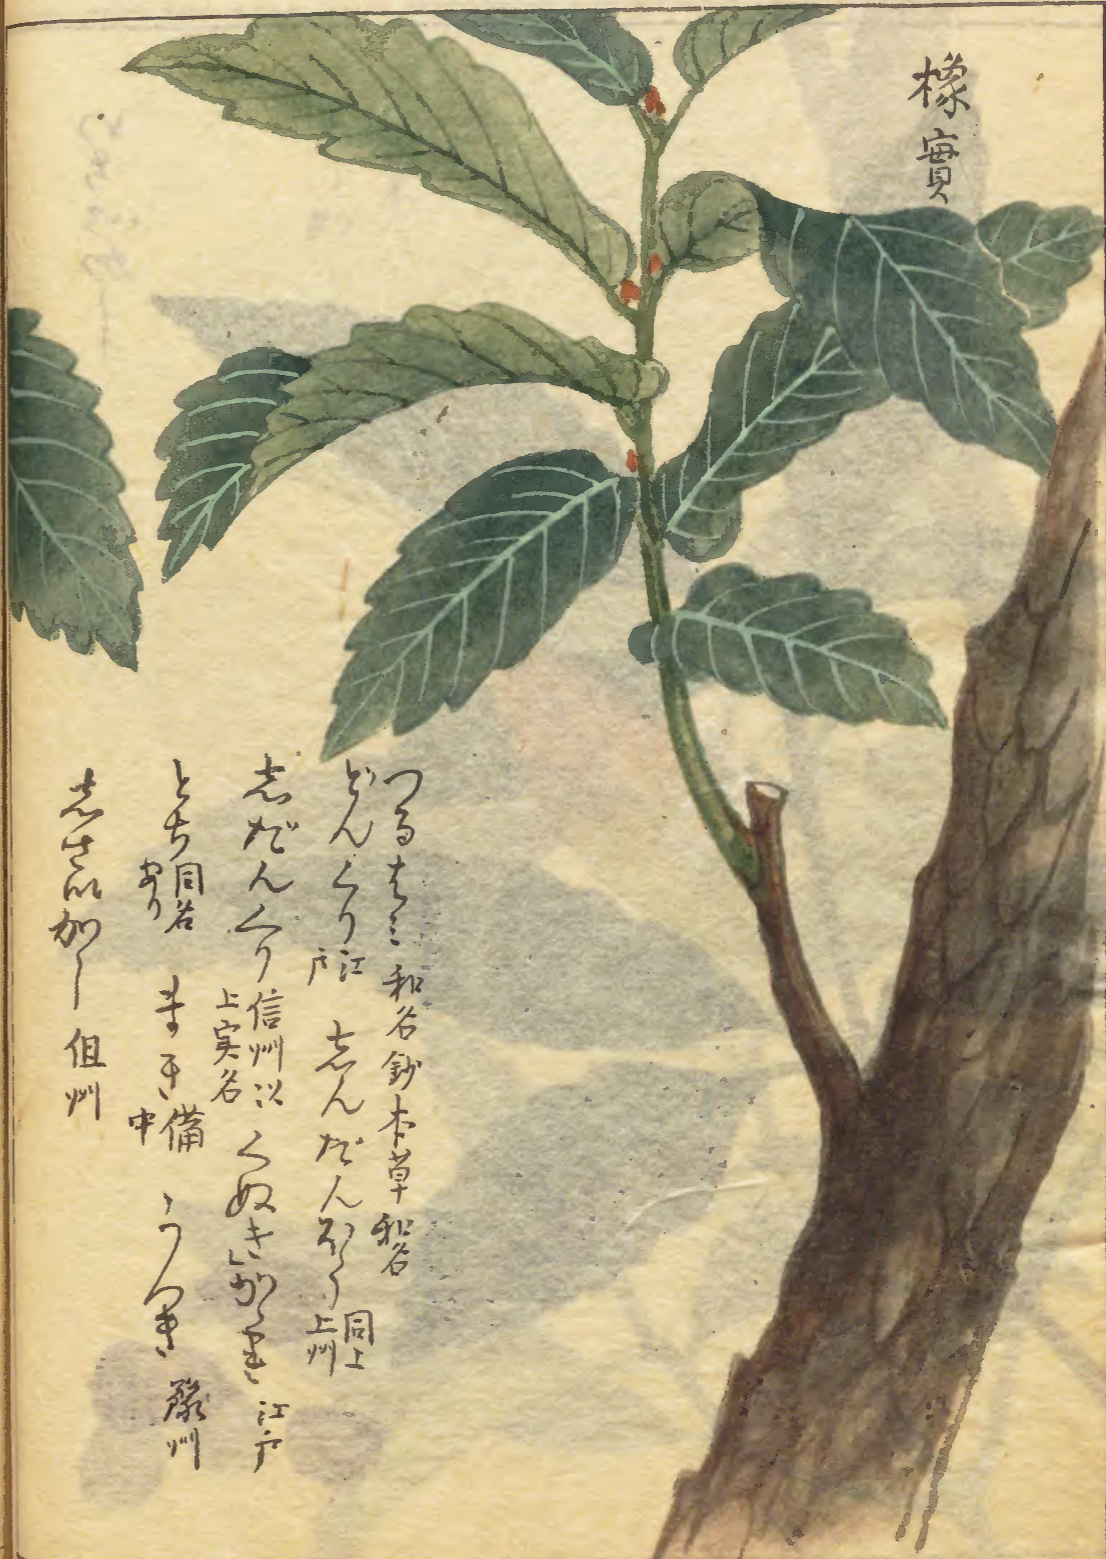 橡實
つるばミ 和名鈔 本草和名
どんぐり 江戸 志んだんぼう 同上 上州
志だんぐり 信州 以上実名 くぬぎ 江戸
とち 同名あり まき 備中 うつぎ 豫州
但州